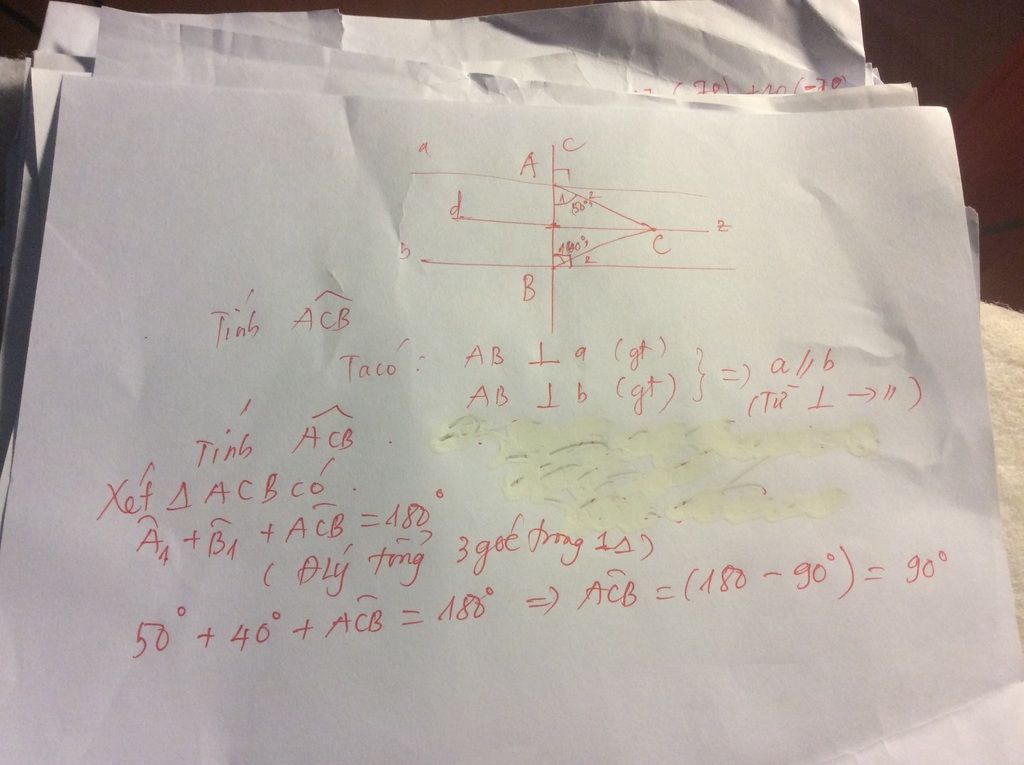 (70) + 10 (-70)
a
A
C
1
2
(50°)
d
z
C
b
2
B
Tính ACB
Ta có: AB ⊥ a (gt)
AB ⊥ b (gt)
} => a // b
(Từ ⊥ → //)
Tính ACB.
Xét Δ ACB có.
Â₁ + B̂₁ + ACB = 180°
( Đlý tổng 3 góc trong 1Δ)
50° + 40° + ACB = 180° => ACB = (180 - 90°) = 90°